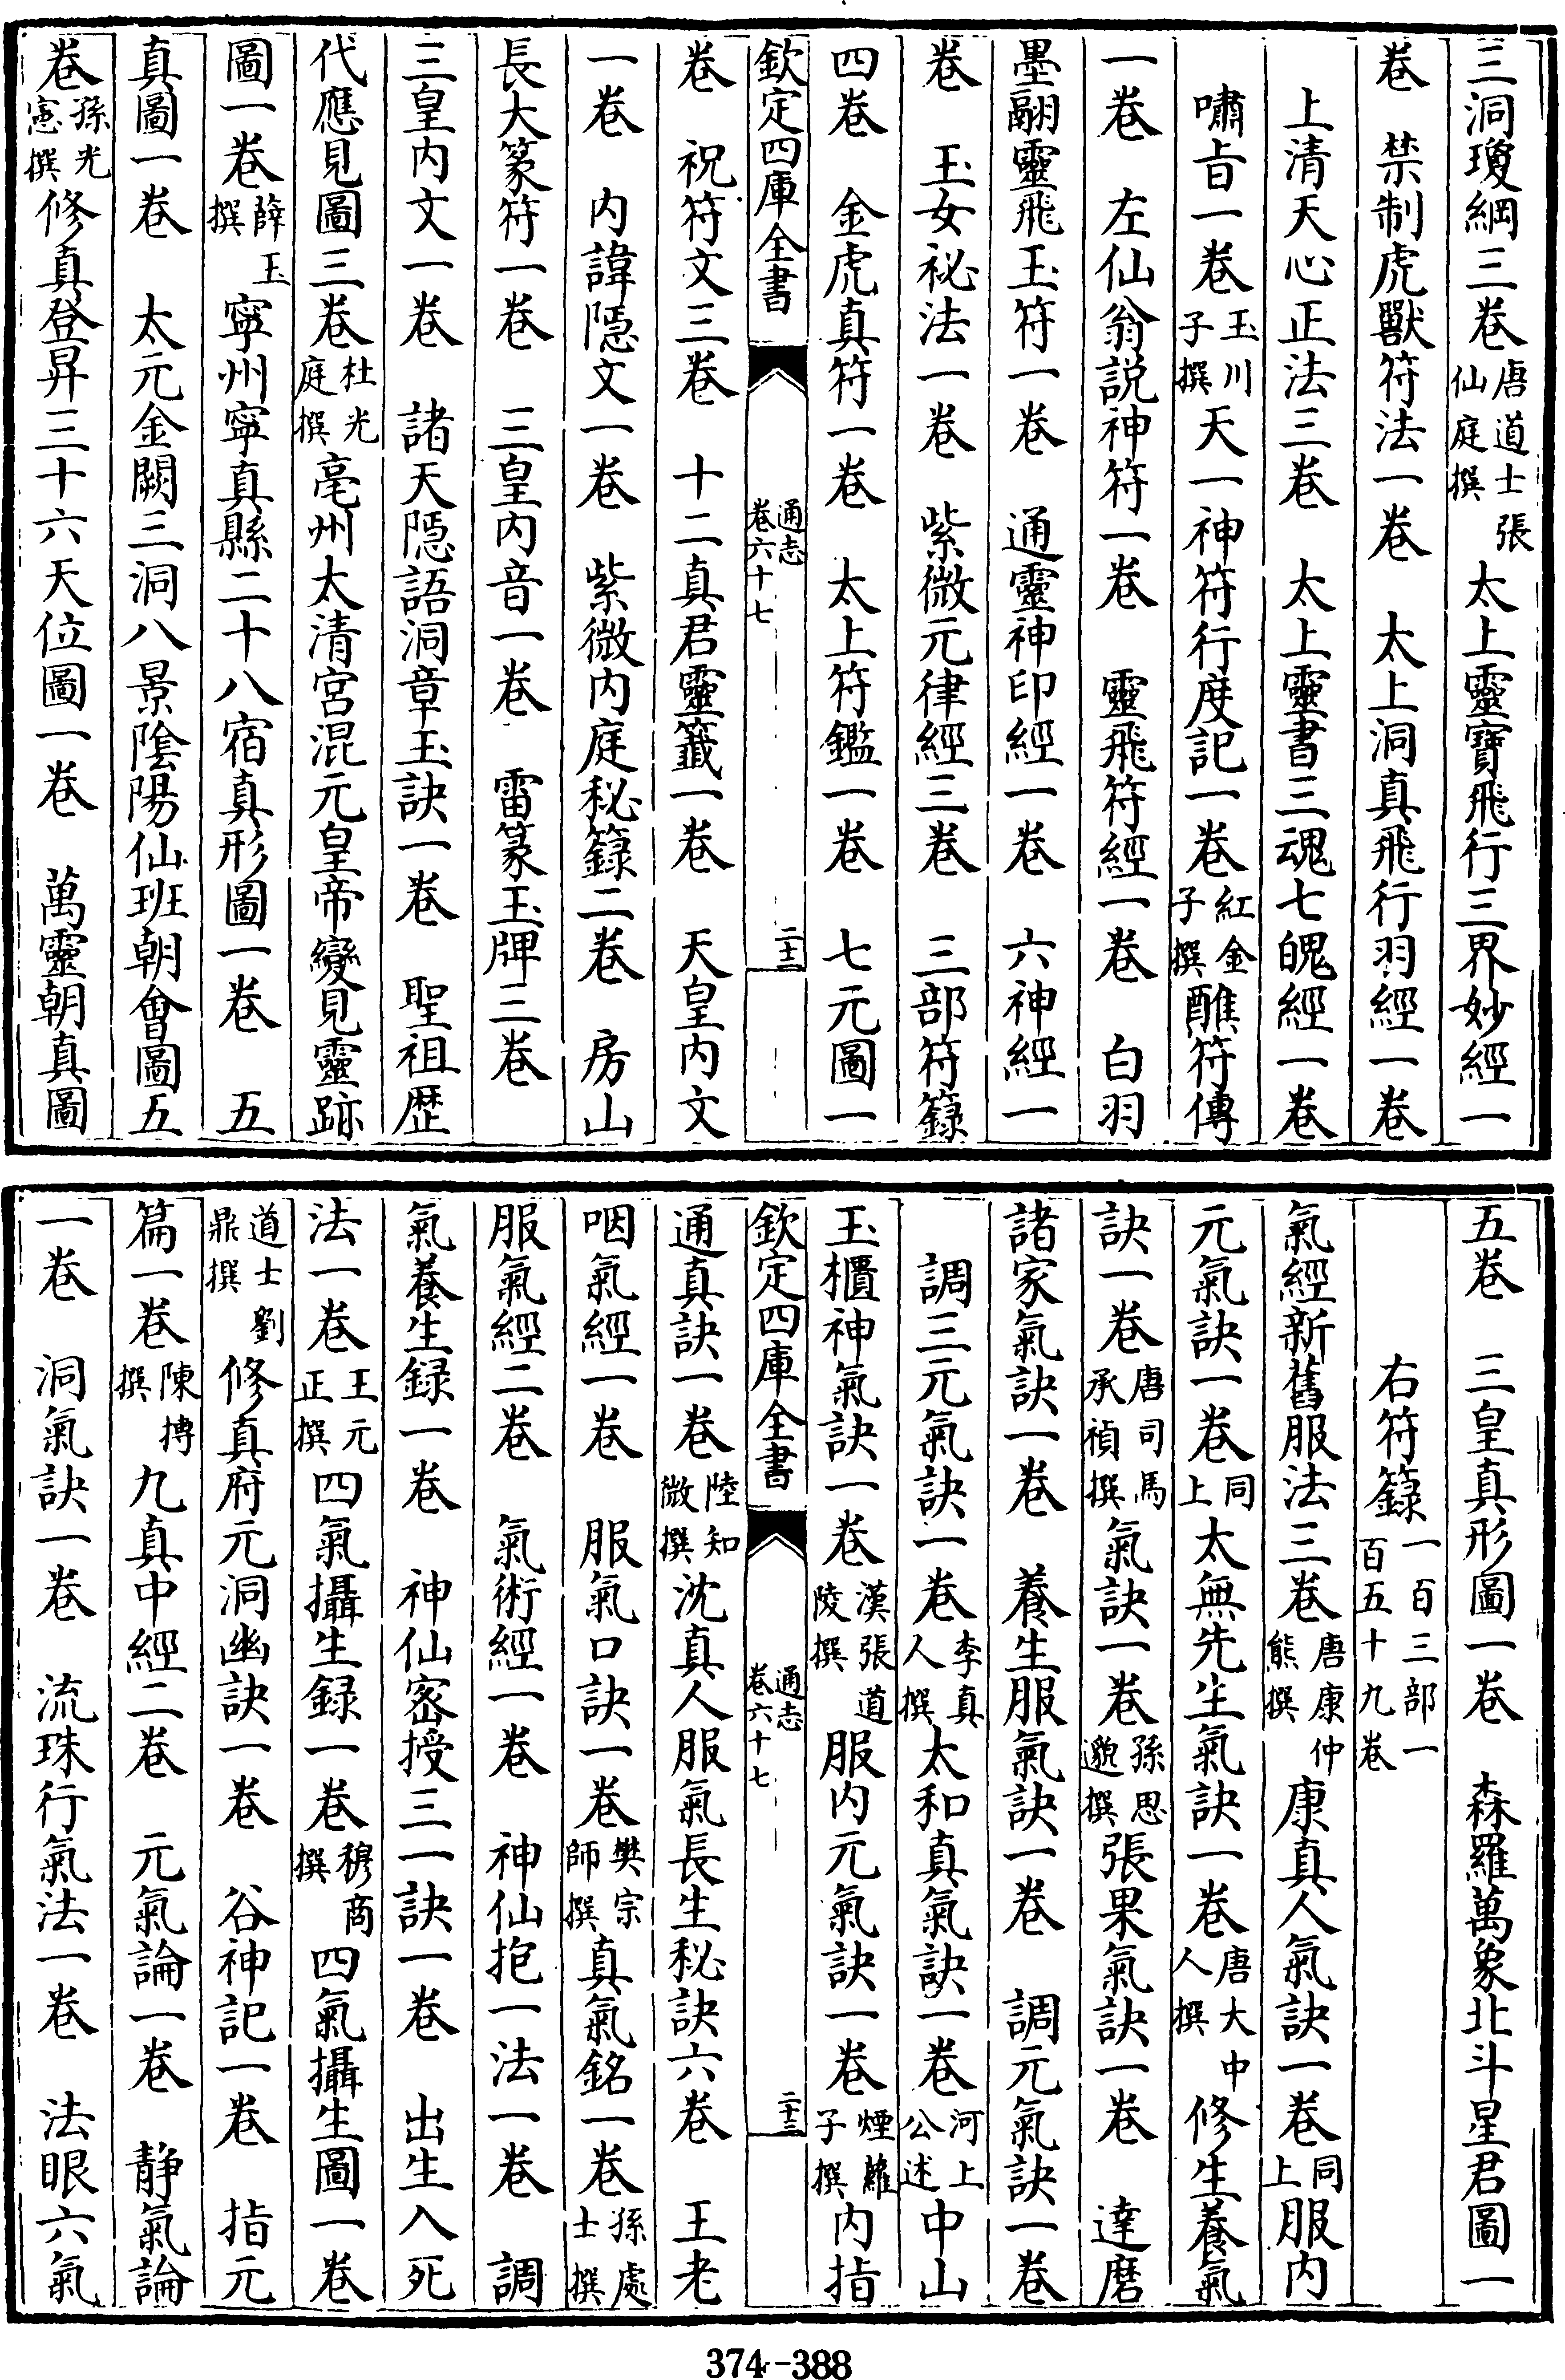 三洞瓊綱三卷唐道士張仙庭撰太上靈寶飛行三界妙經一
卷　禁制虎獸符法一卷　太上洞真飛行羽經一卷
上清天心正法三卷　太上靈書三魂七魄經一卷
嘯旨一卷玉川子撰天一神符行度記一卷紅金子撰醮符傳
一卷　左仙翁説神符一卷　靈飛符經一卷　白羽
墨翮靈飛玉符一卷　通靈神印經一卷　六神經一
卷　玉女祕法一卷　紫微元律經三卷　三部符籙
四卷　金虎真符一卷　太上符鑑一卷　七元圖一
欽定四庫全書　通志卷六十七　二十二
卷　祝符文三卷　十二真君靈籤一卷　天皇内文
一卷　内諱隱文一卷　紫微内庭秘籙二卷　房山
長大篆符一卷　三皇内音一卷　雷篆玉牌三卷
三皇内文一卷　諸天隱語洞章玉訣一卷　聖祖歴
代應見圖三卷杜光庭撰亳州太清宫混元皇帝變見靈跡
圖一卷薛玉撰寧州寧真縣二十八宿真形圖一卷　五
真圖一卷　太元金闕三洞八景隂陽仙班朝會圖五
卷孫光憲撰修真登昇三十六天位圖一卷　萬靈朝真圖
五卷　三皇真形圖一卷　森羅萬象北斗星君圖一
右符籙一百三部一百五十九卷
氣經新舊服法三卷唐康仲熊撰康真人氣訣一卷同上服内
元氣訣一卷同上太無先生氣訣一卷唐大中人撰修生養氣
訣一卷唐司馬承禎撰氣訣一卷孫思邈撰張果氣訣一卷　達磨
諸家氣訣一卷　養生服氣訣一卷　調元氣訣一卷
調三元氣訣一卷李真人撰太和真氣訣一卷河上公述中山
玉櫃神氣訣一卷漢張道陵撰服内元氣訣一卷煙蘿子撰内指
欽定四庫全書　通志卷六十七　二十三
通真訣一卷陸知微撰沈真人服氣長生秘訣六卷　王老
咽氣經一卷　服氣口訣一卷樊宗師撰真氣銘一卷孫處士撰
服氣經二卷　氣術經一卷　神仙抱一法一卷　調
氣養生録一卷　神仙宻授三一訣一卷　出生入死
法一卷王元正撰四氣攝生録一卷穆商撰四氣攝生圖一卷
道士劉鼎撰修真府元洞幽訣一卷　谷神記一卷　指元
篇一卷陳摶撰九真中經二卷　元氣論一卷　静氣論
一卷　洞氣訣一卷　流珠行氣法一卷　法眼六氣
374-388